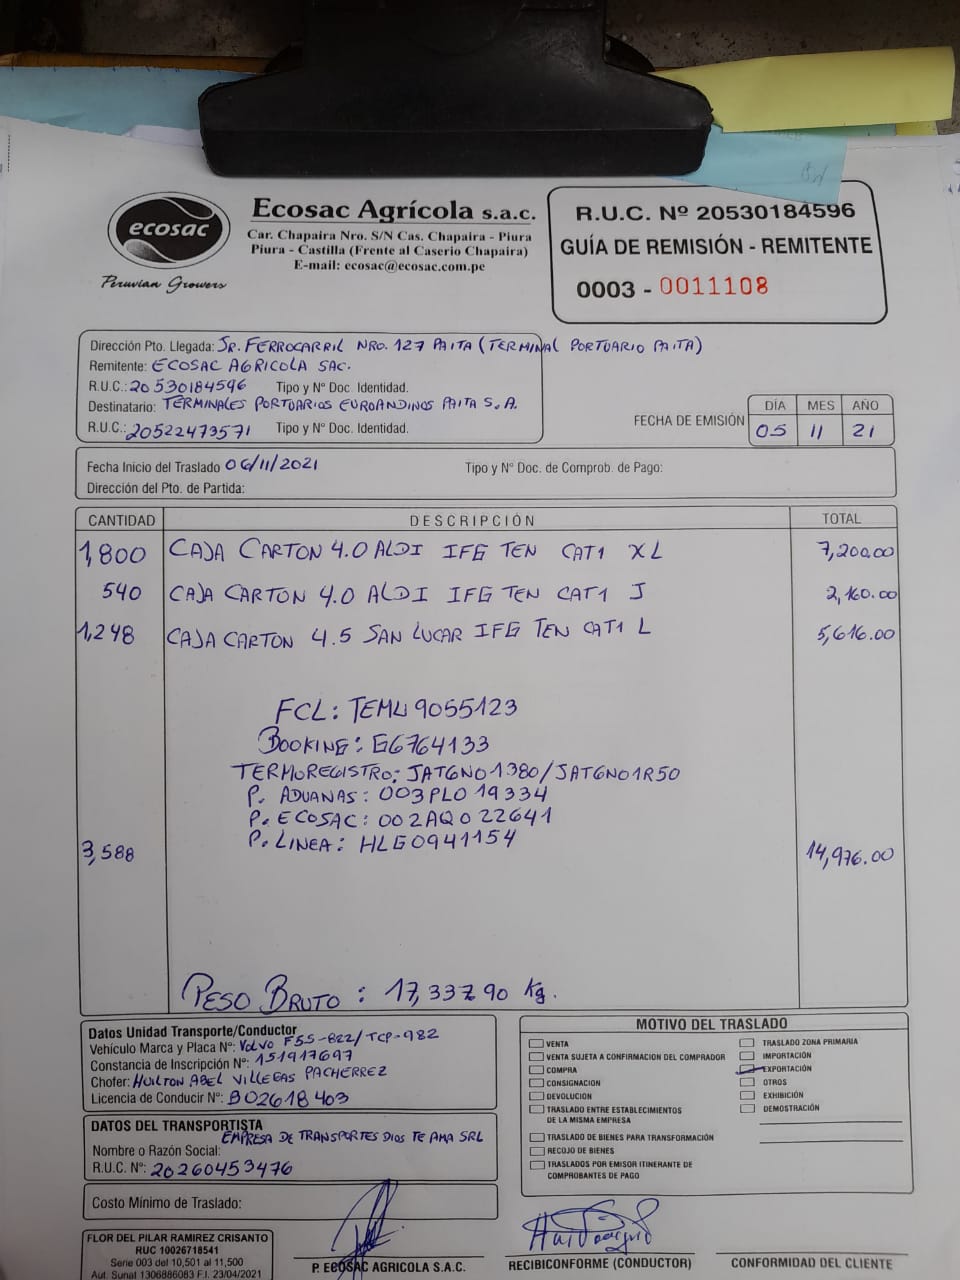 ecosac
Peruvian Growers
Ecosac Agrícola s.a.c.
Car. Chapaira Nro. S/N Cas. Chapaira - Piura
Piura - Castilla (Frente al Caserio Chapaira)
E-mail: ecosac@ecosac.com.pe
R.U.C. Nº 20530184596
GUÍA DE REMISIÓN - REMITENTE
0003 - 0011108
Dirección Pto. Llegada: JR. FERROCARRIL NRO. 127 PAITA (TERMINAL PORTUARIO PAITA)
Remitente: ECOSAC AGRICOLA SAC.
R.U.C.: 20530184596 Tipo y Nº Doc. Identidad.
Destinatario: TERMINALES PORTUARIOS EUROANDINOS PAITA S.A.
R.U.C.: 20522473571 Tipo y Nº Doc. Identidad.
FECHA DE EMISIÓN
DÍA MES AÑO
05 11 21
Fecha Inicio del Traslado 06/11/2021 Tipo y Nº Doc. de Comprob. de Pago:
Dirección del Pto. de Partida:
CANTIDAD DESCRIPCIÓN TOTAL
1,800 CAJA CARTON 4.0 ALDI IFG TEN CAT1 XL 7,200.00
540 CAJA CARTON 4.0 ALDI IFG TEN CAT1 J 2,160.00
1,248 CAJA CARTON 4.5 SAN LUCAR IFG TEN CAT1 L 5,616.00
FCL: TEMU 9055123
BOOKING: G6764133
TERMOREGISTRO: JATGN01380/JATGN01R50
P. ADUANAS: 003PLO19334
P. ECOSAC: 002AQ022641
P. LINEA: HLG0941154
3,588 14,976.00
PESO BRUTO: 17,337.90 Kg.
Datos Unidad Transporte/Conductor
Vehículo Marca y Placa Nº: VOLVO F5S-822/TCP-982
Constancia de Inscripción Nº: 151917697
Chofer: HUILTON ABEL VILLEGAS PACHERREZ
Licencia de Conducir Nº: B02618403
DATOS DEL TRANSPORTISTA
EMPRESA DE TRANSPORTES DIOS TE AMA SRL
Nombre o Razón Social:
R.U.C. Nº: 20260453476
Costo Mínimo de Traslado:
MOTIVO DEL TRASLADO
VENTA
VENTA SUJETA A CONFIRMACION DEL COMPRADOR
COMPRA
CONSIGNACION
DEVOLUCION
TRASLADO ENTRE ESTABLECIMIENTOS
DE LA MISMA EMPRESA
TRASLADO DE BIENES PARA TRANSFORMACIÓN
RECOJO DE BIENES
TRASLADOS POR EMISOR ITINERANTE DE
COMPROBANTES DE PAGO
TRASLADO ZONA PRIMARIA
IMPORTACIÓN
EXPORTACIÓN
OTROS
EXHIBICIÓN
DEMOSTRACIÓN
FLOR DEL PILAR RAMIREZ CRISANTO
RUC 10026718541
Serie 003 del 10,501 al 11,500
Aut. Sunat 1306886083 F.I. 23/04/2021
P. ECOSAC AGRICOLA S.A.C.
RECIBI CONFORME (CONDUCTOR)
CONFORMIDAD DEL CLIENTE